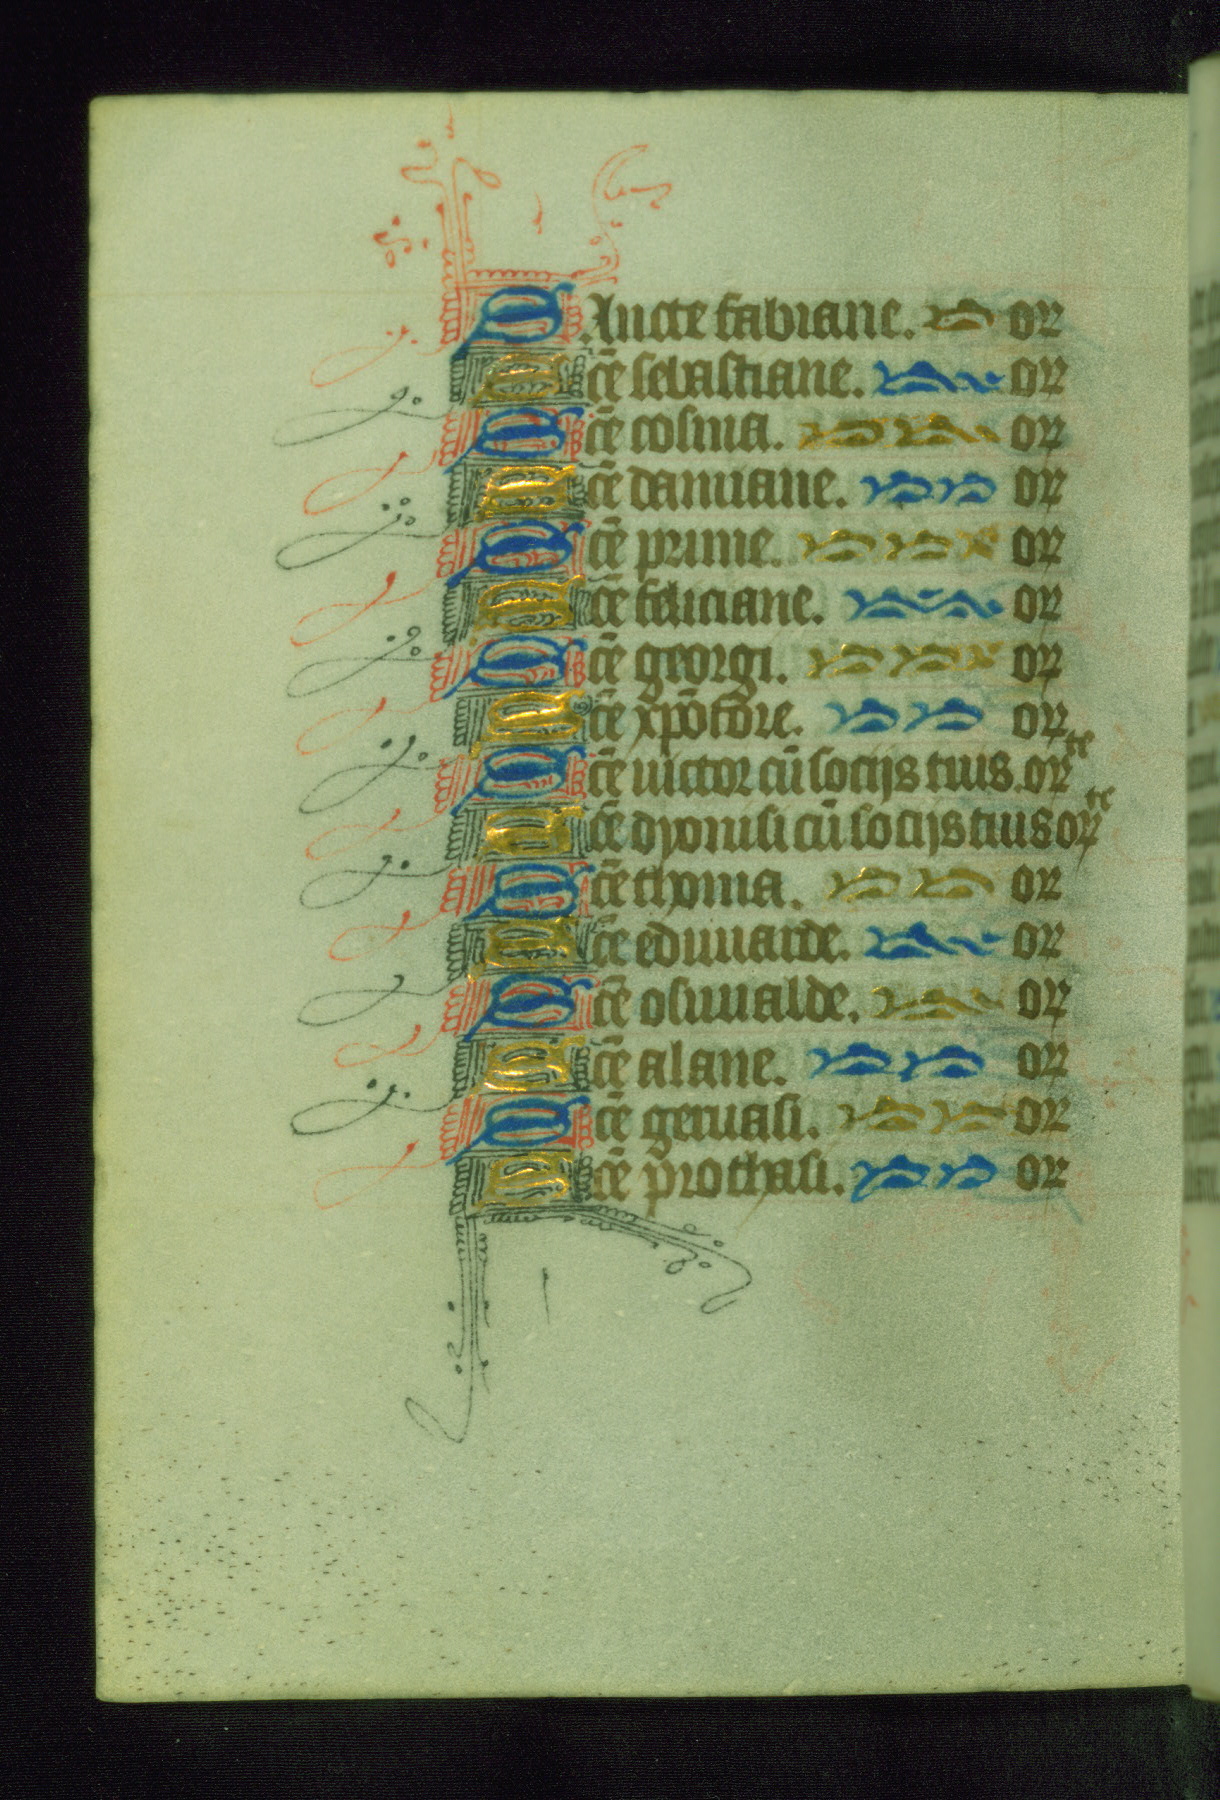 Sancte fabiane. or
Scē sebastiane. or
Scē cosma. or
Scē damiane. or
Scē prime. or
Scē feliciane. or
Scē georgi. or
Scē xp̄ofore. or
Scē uictor cū socijs tuis. orte
Scē dyonisi cū socijs tuis orte
Scē thoma. or
Scē eduuarde. or
Scē osuualde. or
Scē alane. or
Scē geruasi. or
Scē prothasi. or